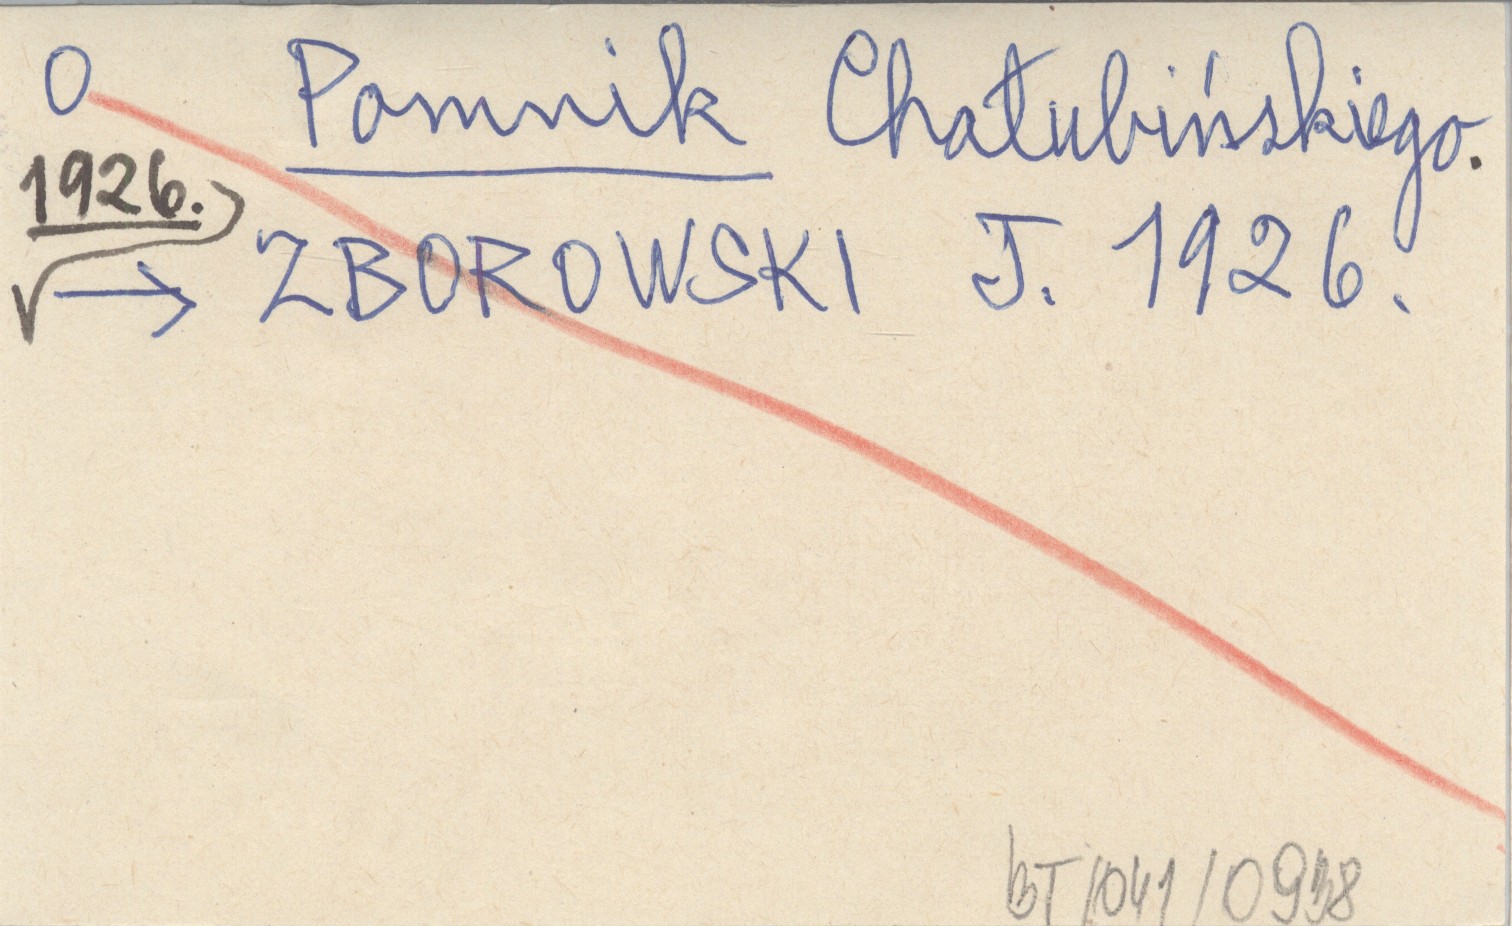 O Pomnik Chałubińskiego.
1926.
√ → ZBOROWSKI J. 1926.
BT/041/0938